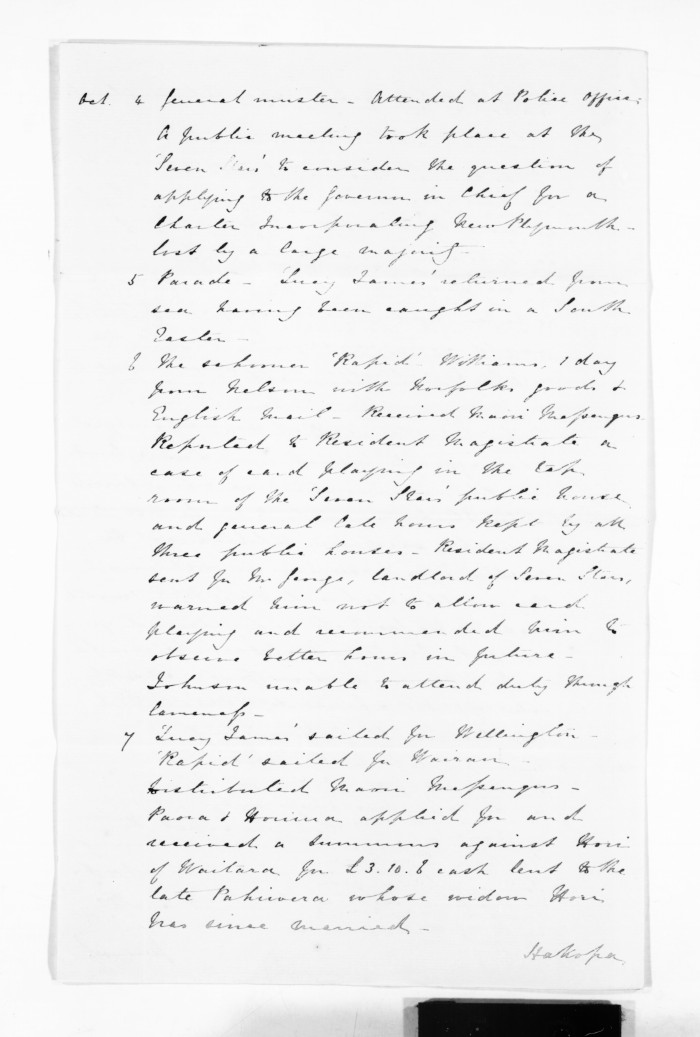 Oct. 4 General muster - Attended at Police Office.
A public meeting took place at the
'Seven Stars' to consider the question of
applying to the Governor in Chief for a
Charter Incorporating New Plymouth -
lost by a large majority -
5 Parade - 'Lucy James' returned from
sea having been caught in a South
Easter -
6 The schooner 'Rapid' - Williams, 1 day
from Nelson with Norfolks goods &
English Mail - Received Maori Messengers
Reported to Resident Magistrate a
case of card playing in the tap
room of the 'Seven Stars' public house
and general late hours kept by all
three public houses - Resident Magistrate
sent for Mr George, landlord of Seven Stars,
warned him not to allow card
playing and recommended him to
observe better hours in future -
Johnson unable to attend duty through
lameness -
7 'Lucy James' sailed for Wellington -
'Rapid' sailed for Wairau -
Distributed Maori Messengers -
Paora & Horima applied for and
received a summons against Hori
of Waitara for £3.10.6 cash lent to the
late Pahiwera whose widow Hori
has since married -
Hakopa,